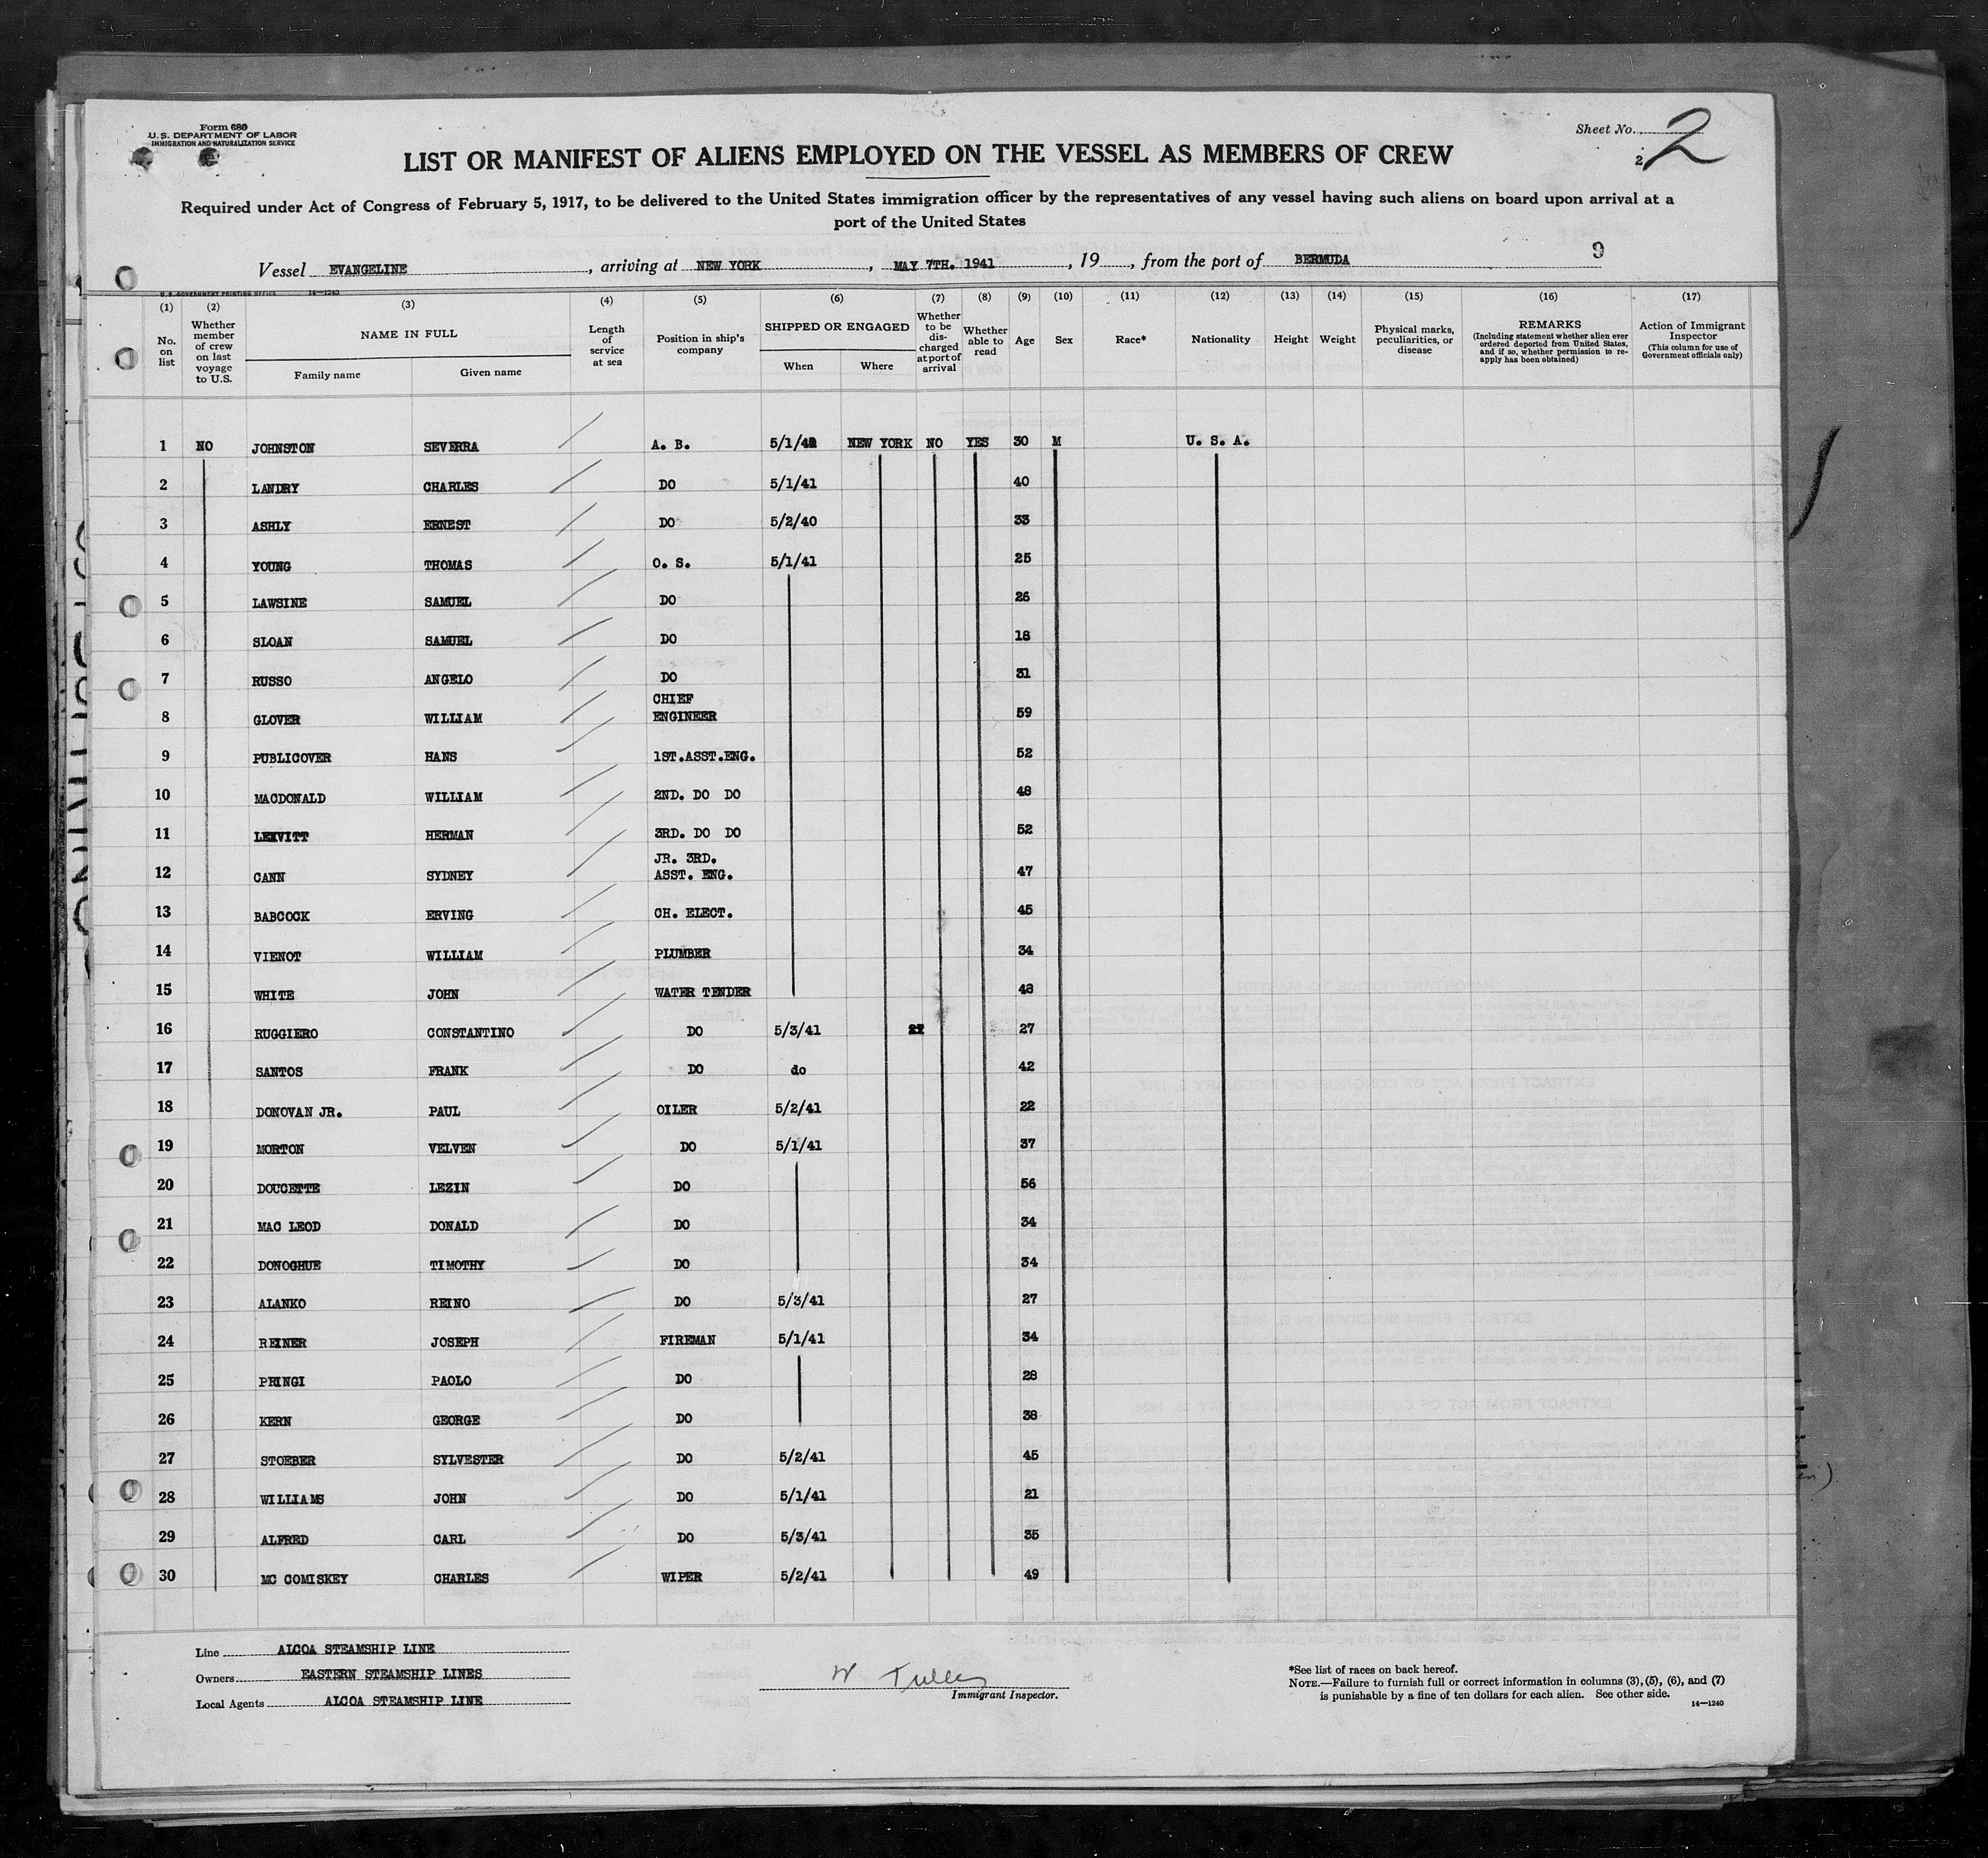 Form 680
U. S. DEPARTMENT OF LABOR
IMMIGRATION AND NATURALIZATION SERVICE
Sheet No.
2
2
LIST OR MANIFEST OF ALIENS EMPLOYED ON THE VESSEL AS MEMBERS OF CREW
Required under Act of Congress of February 5, 1917, to be delivered to the United States immigration officer by the representatives of any vessel having such aliens on board upon arrival at a
port of the United States
9
Vessel EVANGELINE, arriving at NEW YORK, MAY 7TH. 1941, 19, from the port of BERMUDA
U. S. GOVERNMENT PRINTING OFFICE 14—1240
(1) (2) (3) (4) (5) (6) (7) (8) (9) (10) (11) (12) (13) (14) (15) (16) (17)
No. on list
Whether member of crew on last voyage to U.S.
NAME IN FULL
Family name
Given name
Length of service at sea
Position in ship's company
SHIPPED OR ENGAGED
When
Where
Whether to be discharged at port of arrival
Whether able to read
Age
Sex
Race*
Nationality
Height
Weight
Physical marks, peculiarities, or disease
REMARKS
(Including statement whether alien ever ordered deported from United States, and if so, whether permission to reapply has been obtained)
Action of Immigrant Inspector
(This column for use of Government officials only)
1 NO JOHNSTON SEVERRA A. B. 5/1/41 NEW YORK NO YES 30 M U. S. A.
2 LANDRY CHARLES DO 5/1/41 40
3 ASHLY ERNEST DO 5/2/40 33
4 YOUNG THOMAS O. S. 5/1/41 25
5 LAWSINE SAMUEL DO 26
6 SLOAN SAMUEL DO 18
7 RUSSO ANGELO DO 31
8 GLOVER WILLIAM CHIEF ENGINEER 59
9 PUBLICOVER HANS 1ST.ASST.ENG. 52
10 MACDONALD WILLIAM 2ND. DO DO 48
11 LEAVITT HERMAN 3RD. DO DO 52
12 CANN SYDNEY JR. 3RD. ASST. ENG. 47
13 BABCOCK ERVING CH. ELECT. 45
14 VIENOT WILLIAM PLUMBER 34
15 WHITE JOHN WATER TENDER 48
16 RUGGIERO CONSTANTINO DO 5/3/41 27
17 SANTOS FRANK DO do 42
18 DONOVAN JR. PAUL OILER 5/2/41 22
19 MORTON VELVEN DO 5/1/41 37
20 DOUCETTE LEZIN DO 56
21 MAC LEOD DONALD DO 34
22 DONOGHUE TIMOTHY DO 34
23 ALANKO REINO DO 5/3/41 27
24 REINER JOSEPH FIREMAN 5/1/41 34
25 PRINGI PAOLO DO 28
26 KERN GEORGE DO 38
27 STOEBER SYLVESTER DO 5/2/41 45
28 WILLIAMS JOHN DO 5/1/41 21
29 ALFRED CARL DO 5/3/41 35
30 MC COMISKEY CHARLES WIPER 5/2/41 49
Line ALCOA STEAMSHIP LINE
Owners EASTERN STEAMSHIP LINES
Local Agents ALCOA STEAMSHIP LINE
W Tulley
Immigrant Inspector.
*See list of races on back hereof.
NOTE.—Failure to furnish full or correct information in columns (3), (5), (6), and (7)
is punishable by a fine of ten dollars for each alien. See other side.
14—1240